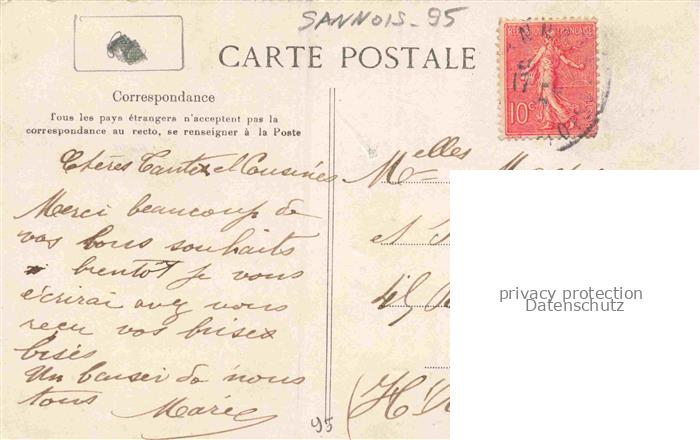 SANNOIS - 95
CARTE POSTALE
RÉPUBLIQUE FRANÇAISE
10c
Correspondance
Tous les pays étrangers n'acceptent pas la
correspondance au recto, se renseigner à la Poste
Chères Tante et Cousines
Merci beaucoup de
vos bons souhaits
bientôt je vous
écrirai avez vous
reçu vos
Un baiser de nous
tous
Marie
Melles
et
45
(H
95
privacy protection
Datenschutz